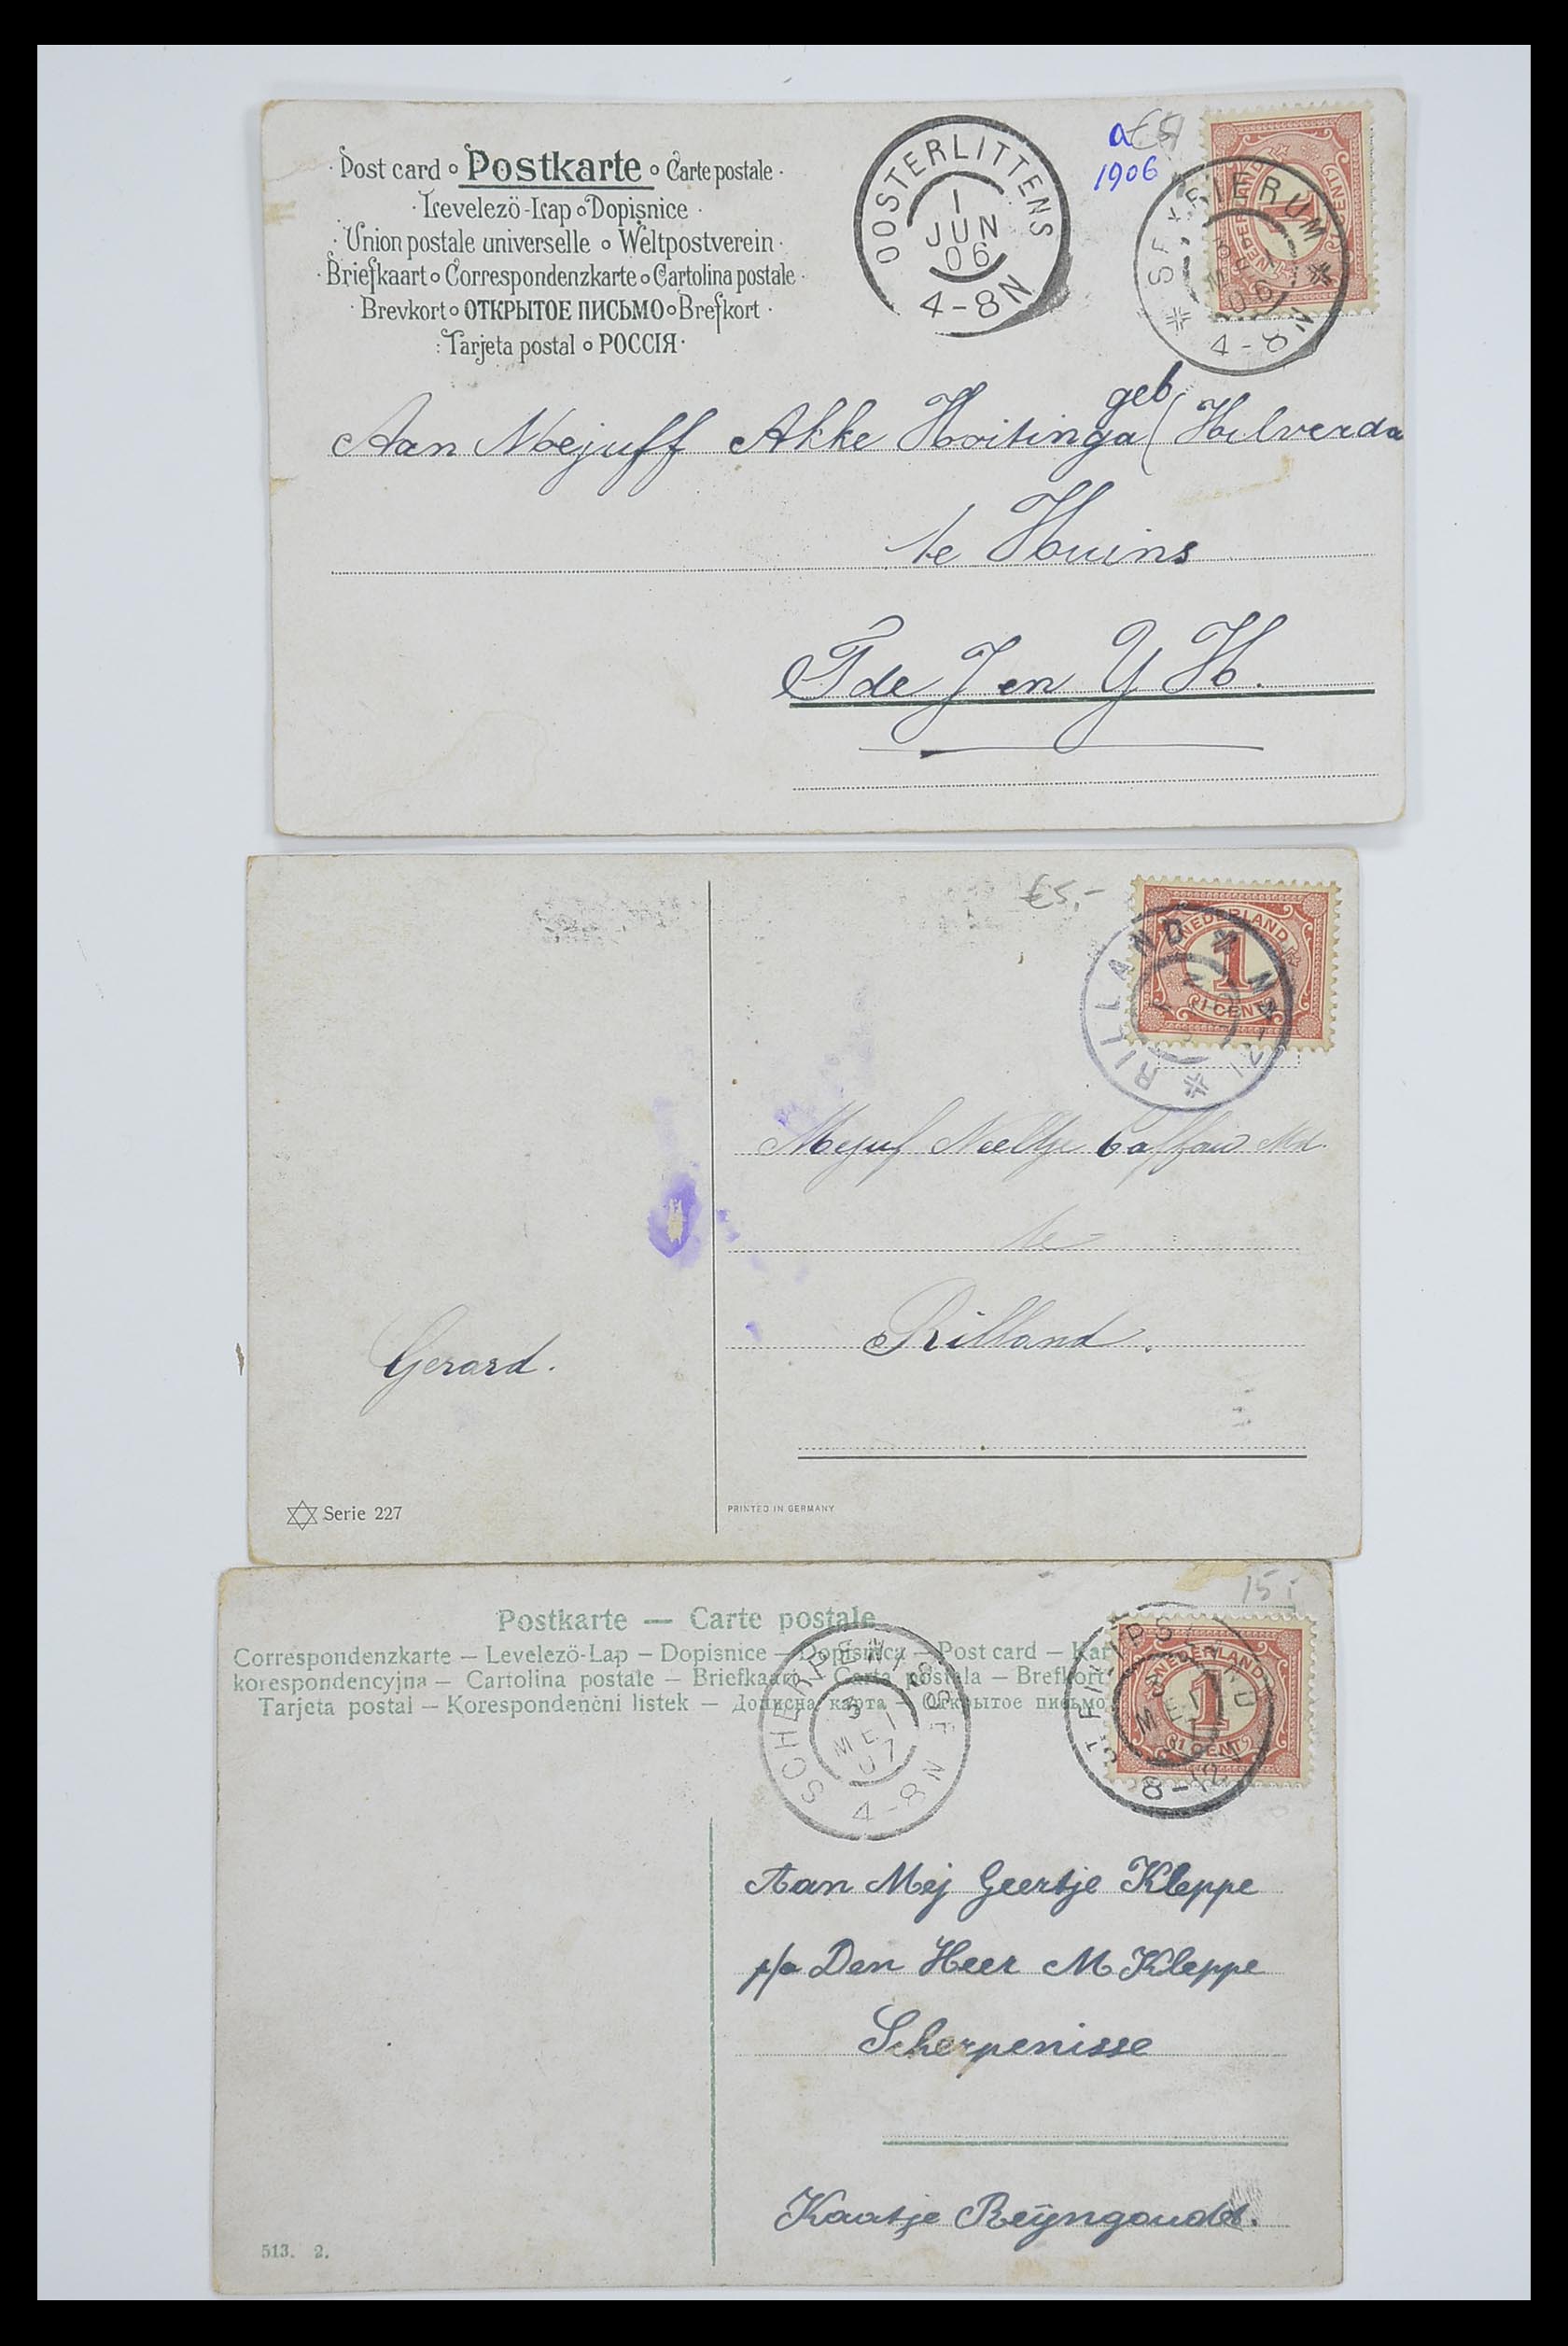 · Post card ∘ Postkarte ∘ Carte postale ·
· Levelező-Lap ∘ Dopisnice ·
· Union postale universelle ∘ Weltpostverein ·
· Briefkaart ∘ Correspondenzkarte ∘ Cartolina postale ·
· Brevkort ∘ ОТКРЫТОЕ ПИСЬМО ∘ Brefkort ·
: Tarjeta postal ∘ РОССІЯ ·
OOSTERLITTENS
1
JUN
06
4-8N
a €5,
1906
NEDERLAND
1
1 CENT
SEXBIERUM
31
MEI
06
4-8N
Aan Mejuff Akke Hoitinga (geb Hilverda
te Huins
T de J en Y H.
€5,-
NEDERLAND
1
1 CENT
RILLAND
Mejuf Neeltje
te
Rilland.
Gerard.
Serie 227
PRINTED IN GERMANY
15,-
Postkarte — Carte postale
Correspondenzkarte — Levelező-Lap — Dopisnice — Dopisnica — Post card — Kar
korespondencyjna — Cartolina postale — Briefkaart — Carta postala — Brefkort
Tarjeta postal — Korespondenční listek — Дописна карта — Открытое письмо
SCHERPENISSE
3
MEI
07
4-8N
NEDERLAND
1
1 CENT
ST. FILIPSLAND
3
MEI
8-12V
Aan Mej Geertje Kleppe
p/a Den Heer M Kleppe
Scherpenisse
Kaatje Reijngoudt.
513. 2.